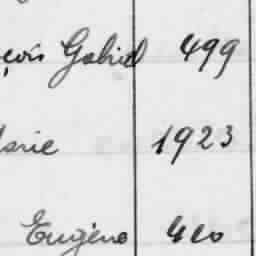 çois Gabriel 499
Marie 1923
Eugène 420